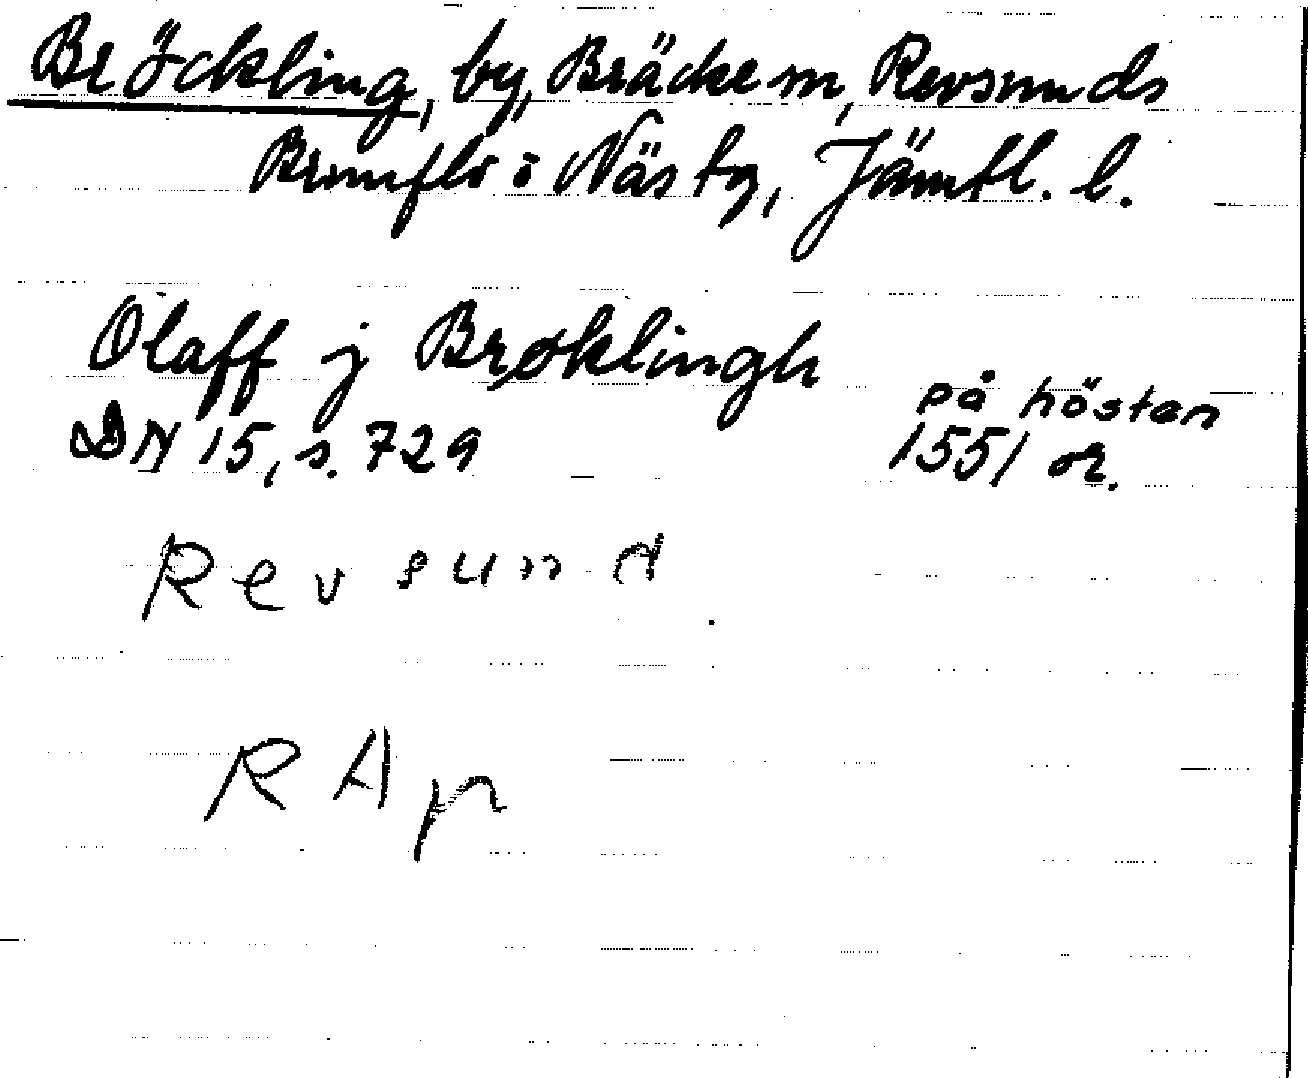 Bröckling, by, Bräcke sn, Revsunds
Brunflo o Näs tg, Jämtl. l.
Olaff j Brøklingh
på hösten
DN 15, s. 729
1551 or.
Revsund
RAp